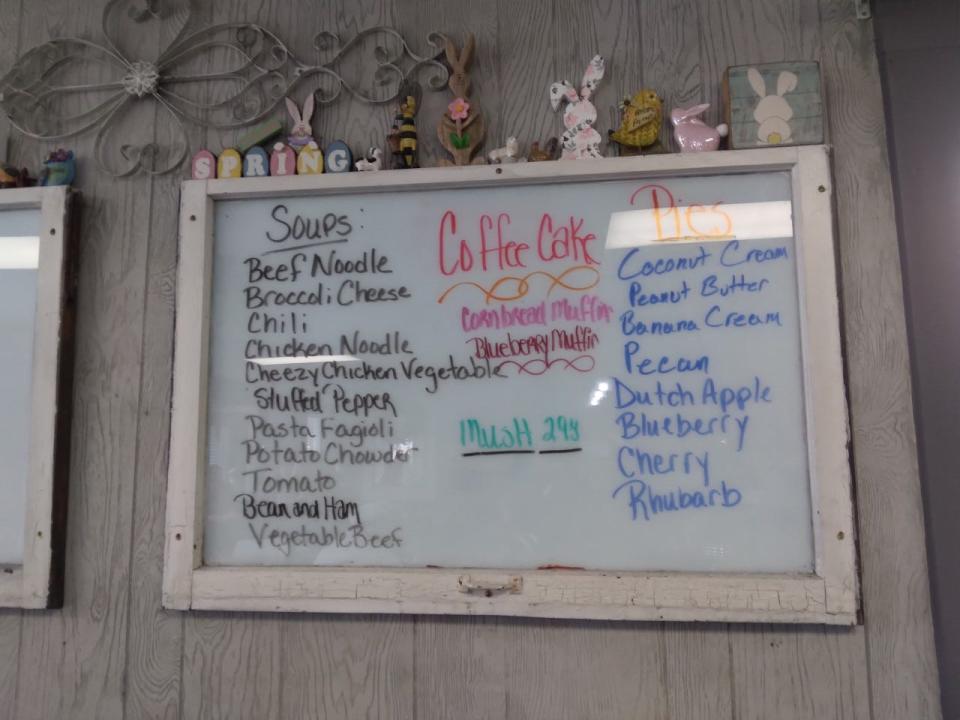 SPRING
Soups:
Beef Noodle
Broccoli Cheese
Chili
Chicken Noodle
Cheezy Chicken Vegetable
"Stuffed" Pepper
Pasta Fagioli
Potato Chowder
Tomato
Bean and Ham
Vegetable Beef
Coffee Cake
Cornbread Muffin
Blueberry Muffin
MUSH 299
Pies
Coconut Cream
Peanut Butter
Banana Cream
Pecan
Dutch Apple
Blueberry
Cherry
Rhubarb